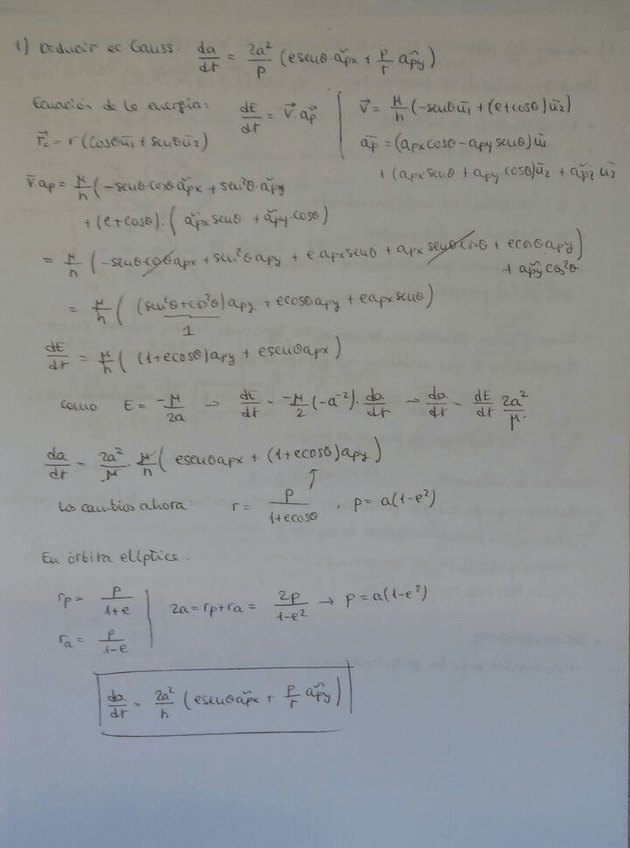 1) Deducir ec Gauss: da/dt = 2a²/p (e senθ ãpx + p/r ãpy)
Ecuación de la energía: dE/dt = v⃗·a⃗p | v⃗ = μ/h (-senθ ū1 + (e+cosθ) ū2)
r⃗c = r(cosθ ū1 + senθ ū2) | āp = (apx cosθ - apy senθ) ū1
+ (apx senθ + apy cosθ) ū2 + ãpz ū3
v̄ ap = μ/h (-senθ cosθ ãpx + sen²θ ãpy
+ (e+cosθ)·(ãpx senθ + ãpy cosθ)
= μ/h (-senθ cosθ apx + sen²θ apy + e·apx senθ + apx senθ cosθ + e cosθ apy)
+ ãpy cos²θ
= μ/h ((sen²θ + cos²θ) apy + e cosθ apy + e apx senθ)
1
dE/dt = μ/h ((1+e cosθ) apy + e senθ apx)
como E = -μ/2a → dE/dt = -μ/2 (-a⁻²)· da/dt → da/dt = dE/dt 2a²/μ
da/dt = 2a²/μ · μ/h (e senθ apx + (1+e cosθ) apy)
los cambios ahora r = p/1+e cosθ , p = a(1-e²)
En órbita elíptica.
rp = p/1+e | 2a = rp + ra = 2p/1-e² → p = a(1-e²)
ra = p/1-e
da/dt = 2a²/h (e senθ ãpx + p/r ãpy)